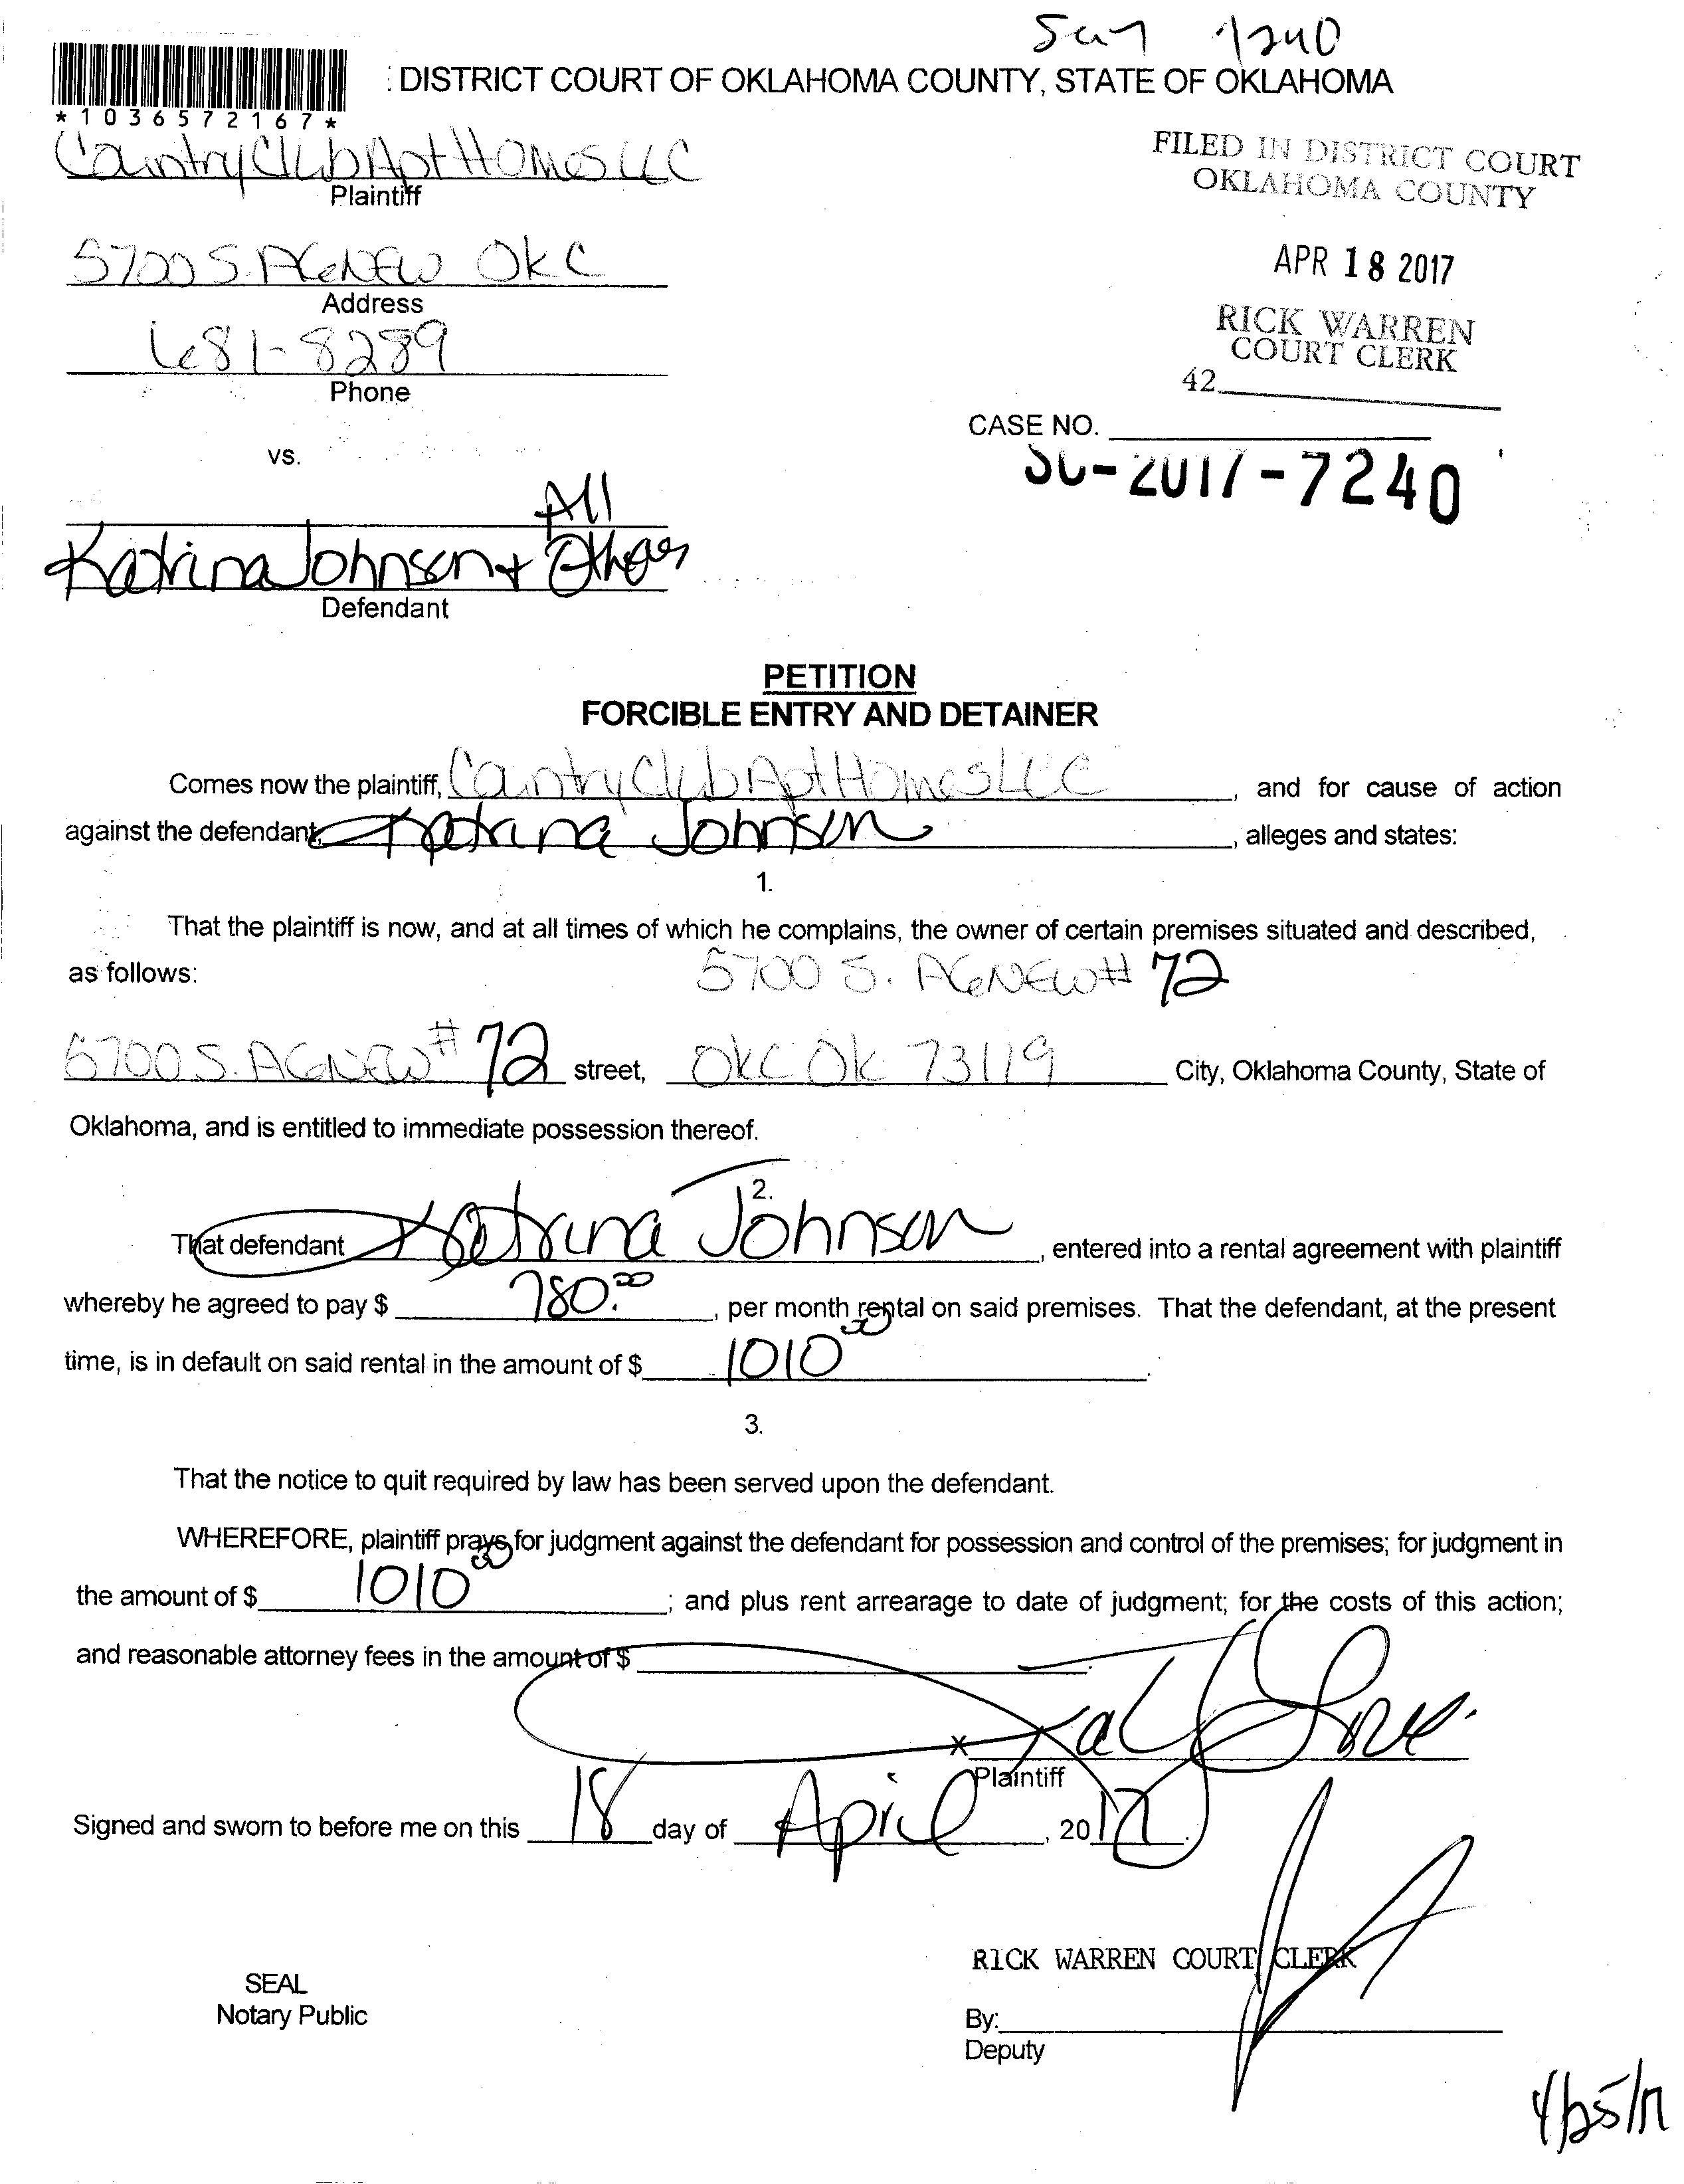 7240
DISTRICT COURT OF OKLAHOMA COUNTY, STATE OF OKLAHOMA
*1036572167*
Country Club Apt Homes LLC
Plaintiff
FILED IN DISTRICT COURT
OKLAHOMA COUNTY
5700 S. AGNEW OKC
Address
APR 18 2017
681-8289
Phone
RICK WARREN
COURT CLERK
42
CASE NO.
SC-2017-7240
vs.
All
Katrina Johnson + Others
Defendant
PETITION
FORCIBLE ENTRY AND DETAINER
Comes now the plaintiff, Country Club Apt Homes LLC, and for cause of action
against the defendant, Katrina Johnson, alleges and states:
1.
That the plaintiff is now, and at all times of which he complains, the owner of certain premises situated and described,
as follows: 5700 S. AGNEW # 72
5700 S. AGNEW # 72 street, OKC OK 73119 City, Oklahoma County, State of
Oklahoma, and is entitled to immediate possession thereof.
2.
That defendant Katrina Johnson, entered into a rental agreement with plaintiff
whereby he agreed to pay $ 780.00, per month rental on said premises. That the defendant, at the present
time, is in default on said rental in the amount of $ 1010 00.
3.
That the notice to quit required by law has been served upon the defendant.
WHEREFORE, plaintiff prays for judgment against the defendant for possession and control of the premises; for judgment in
the amount of $ 1010 00; and plus rent arrearage to date of judgment; for the costs of this action;
and reasonable attorney fees in the amount of $
X
Plaintiff
Signed and sworn to before me on this 18 day of April, 2017.
RICK WARREN COURT CLERK
SEAL
Notary Public
By:
Deputy
4/25/17